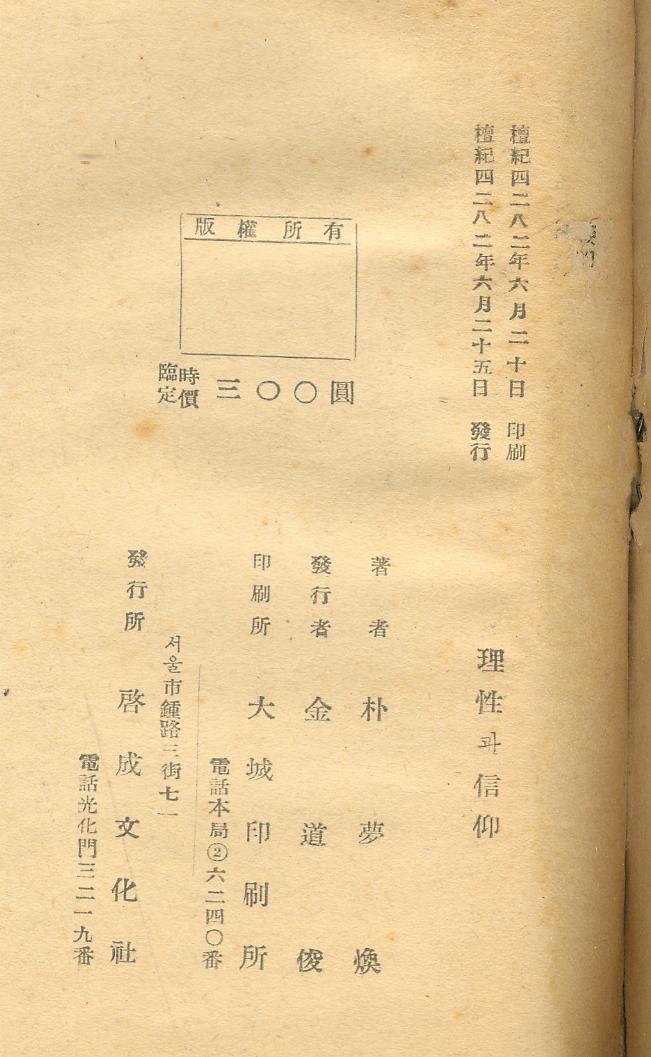 檀紀四二八二年六月二十日 印刷
檀紀四二八二年六月二十五日 發行
版權所有
臨時定價 三〇〇圓
理性과信仰
著者 朴夢煥
發行者 金道俊
印刷所 大城印刷所
電話本局②六二四〇番
서울市鍾路三街七一
發行所 啓成文化社
電話光化門三二一九番